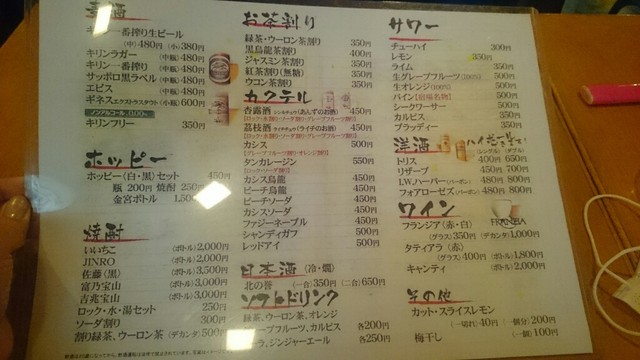 麦酒
キリン一番搾り生ビール
(中)480円 (小)380円
キリンラガー (中瓶)480円
キリン一番搾り (中瓶)480円
サッポロ黒ラベル (中瓶)480円
エビス (中瓶)480円
ギネスエクストラスタウト(小瓶)600円
ノンアルコール
キリンフリー 350円
ホッピー
ホッピー(白・黒)セット 450円
瓶 200円 焼酎 250円
金宮ボトル
焼酎
いいちこ (ボトル)2,000円
JINRO (ボトル)2,000円
佐藤(黒) (ボトル)3,500円
富乃宝山 (ボトル)3,000円
吉兆宝山 (ボトル)3,000円
ロック・水・湯セット 250円
ソーダ割り 300円
割り緑茶、ウーロン茶 (デカンタ)500円
お茶割り
緑茶・ウーロン茶割り 350円
黒烏龍茶割り 400円
ジャスミン茶割り 350円
紅茶割り(無糖) 350円
ウコン茶割り 350円
カクテル
杏露酒 シンルチュウ(あんずのお酒) 450円
[ロック・水割り・ソーダ割り・グレープフルーツ割り]
茘枝酒 ライチチュウ(ライチのお酒) 450円
[ロック・水割り・ソーダ割り・グレープフルーツ割り]
カシス 500円
[グレープフルーツ割り・オレンジ割り]
タンカレージン 550円
[ロック・ソーダ割り]
カシス烏龍 450円
ピーチ烏龍 450円
ピーチソーダ 450円
カシスソーダ 450円
ファジーネーブル 500円
シャンディガフ 500円
レッドアイ 500円
日本酒 (冷・燗)
北の誉 (一合)350円 (二合)650円
ソフトドリンク
緑茶、ウーロン茶、オレンジ
グレープフルーツ、カルピス 各200円
コーラ、ジンジャーエール 各250円
サワー
チューハイ 300円
レモン 350円
ライム 350円
生グレープフルーツ(100%) 500円
生オレンジ(100%) 500円
パイン【宿場名物】 500円
シークワーサー 500円
カルピス 350円
ブラッディー 350円
洋酒 ハイボールも
できます!
(シングル) (ダブル)
トリス 400円 650円
リザーブ 450円 700円
I.W.ハーパー(バーボン) 480円 800円
フォアローゼス(バーボン) 480円 800円
ワイン
フランジア(赤・白) FRANZIA
(グラス)350円 (デカンタ)1,000円
タティアラ(赤)
(グラス)400円 (ボトル)1,800円
キャンティ (ボトル)2,000円
その他
カット・スライスレモン
(一切れ)40円 (一個分)200円
梅干し (一個)100円